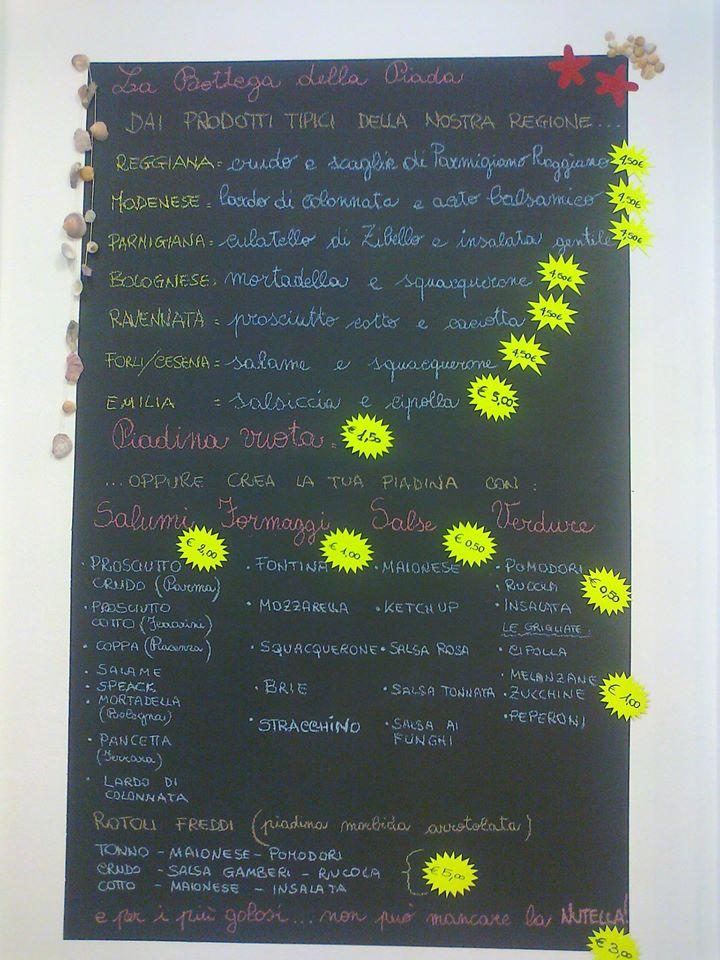 La Bottega della Piada
DAI PRODOTTI TIPICI DELLA NOSTRA REGIONE...
REGGIANA = crudo e scaglie di Parmigiano Reggiano 4,50€
MODENESE = lardo di colonnata e aceto balsamico 4,50€
PARMIGIANA = culatello di Zibello e insalata gentile 4,50€
BOLOGNESE = mortadella e squacquerone 4,50€
RAVENNATA = prosciutto cotto e caciotta 4,50€
FORLI/CESENA = salame e squacquerone 4,50€
EMILIA = salsiccia e cipolla € 5,00
Piadina vuota = € 1,50
...OPPURE CREA LA TUA PIADINA CON:
Salumi Formaggi Salse Verdure
€ 2,00 € 1,00 € 0,50
• PROSCIUTTO CRUDO (Parma)
• PROSCIUTTO COTTO (Ferrarini)
• COPPA (Piacenza)
• SALAME
• SPEACK
• MORTADELLA (Bologna)
• PANCETTA (Ferrara)
• LARDO DI COLONNATA
• FONTINA
• MOZZARELLA
• SQUACQUERONE
• BRIE
• STRACCHINO
• MAIONESE
• KETCHUP
• SALSA ROSA
• SALSA TONNATA
• SALSA AI FUNGHI
• POMODORI
• RUCOLA € 0,50
• INSALATA
LE GRIGLIATE:
• CIPOLLA
• MELANZANE
• ZUCCHINE € 1,00
• PEPERONI
ROTOLI FREDDI (piadina morbida arrotolata)
TONNO - MAIONESE - POMODORI
CRUDO - SALSA GAMBERI - RUCOLA € 5,00
COTTO - MAIONESE - INSALATA
e per i più golosi... non può mancare la NUTELLA!
€ 3,00